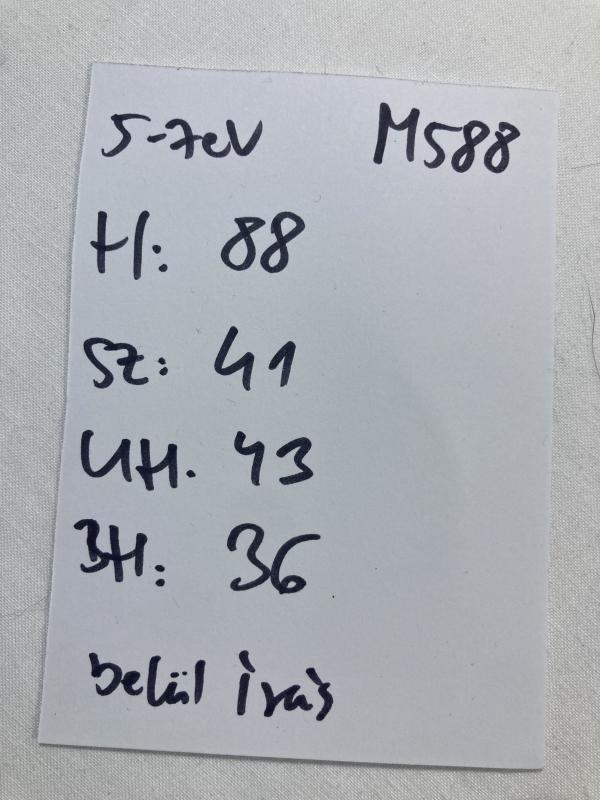 5-7ev M588
H: 88
SZ: 41
UH. 43
BH: 36
belül írás